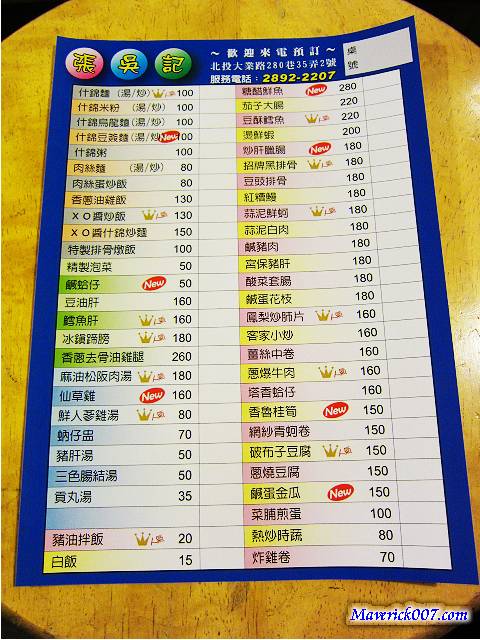 張 吳 記
～歡迎來電預訂～
北投大業路280巷35弄2號
服務電話：2892-2207
桌號
什錦麵（湯/炒）人氣 100
什錦米粉（湯/炒） 100
什錦烏龍麵（湯/炒） 100
什錦豆簽麵（湯/炒）New 100
什錦粥 100
肉絲麵（湯/炒） 80
肉絲蛋炒飯 80
香蔥油雞飯 130
ＸＯ醬炒飯 人氣 130
ＸＯ醬什錦炒麵 150
特製排骨燉飯 100
精製泡菜 50
鹹蛤仔 New 50
豆油肝 160
鱈魚肝 人氣 160
冰鎮蹄膀 人氣 180
香蔥去骨油雞腿 260
麻油松阪肉湯 人氣 180
仙草雞 New 160
鮮人蔘雞湯 人氣 80
蚋仔盅 70
豬肝湯 50
三色腸結湯 50
貢丸湯 35
豬油拌飯 人氣 20
白飯 15
糖醋鮮魚 New 280
茄子大腸 220
豆酥鱈魚 人氣 220
燙鮮蝦 200
炒肝臘腸 New 180
招牌黑排骨 人氣 180
豆豉排骨 180
紅糟鰻 180
蒜泥鮮蚵 人氣 180
蒜泥白肉 180
鹹豬肉 180
宮保豬肝 180
酸菜套腸 180
鹹蛋花枝 180
鳳梨炒肺片 人氣 160
客家小炒 160
薑絲中卷 160
蔥爆牛肉 人氣 160
塔香蛤仔 160
香魯桂筍 New 150
網紗青蚵卷 150
破布子豆腐 人氣 150
蔥燒豆腐 150
鹹蛋金瓜 New 150
菜脯煎蛋 100
熱炒時蔬 80
炸雞卷 70
Maverick007.com